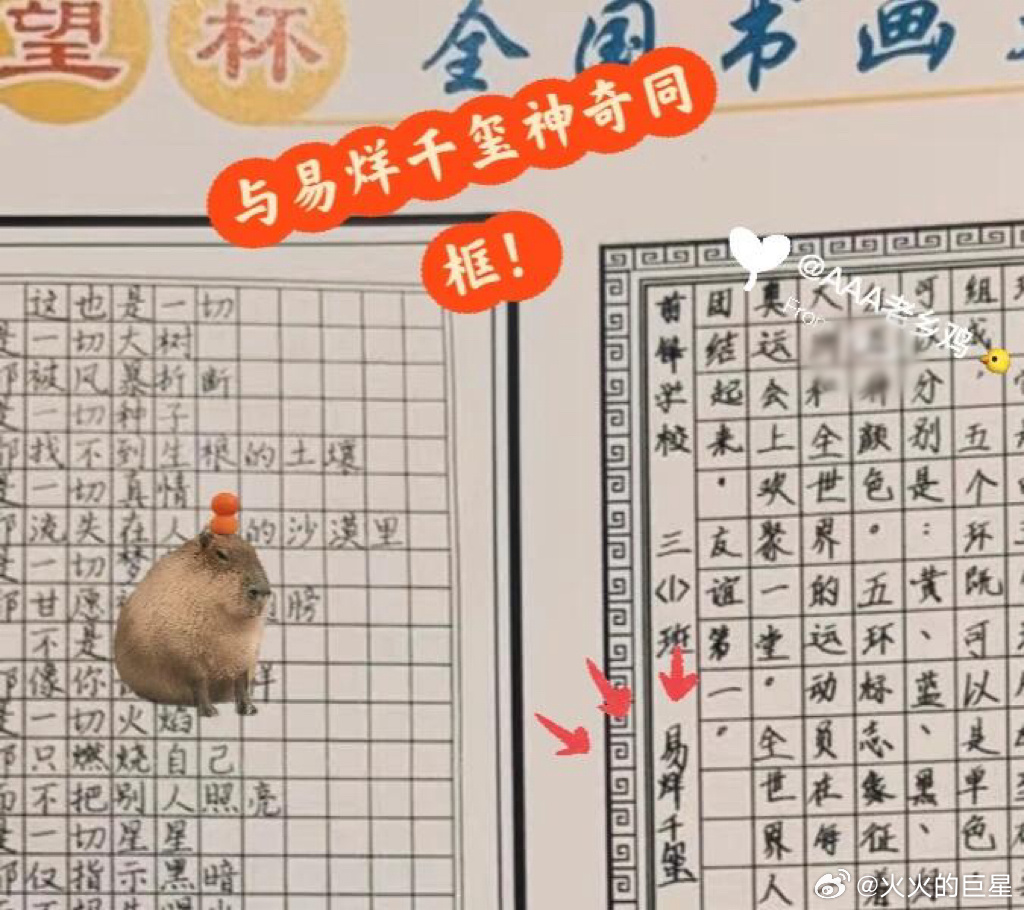 望杯 全国书画
与易烊千玺神奇同
框！
@AAA老乡鸡
From
这也是一切
一切大树
被风暴折断
一切种子
找不到生根的土壤
一切真情
流失在人的沙漠里
一切梦
甘愿膀
不是
像你样
一切火焰
只燃烧自己
不把别人照亮
一切星星
仅指示黑暗
组成，五个环既可以是单色
分别是：黄、蓝、黑、
种颜色。五环标志象征着
和全世界的运动员在每
奥运会上欢聚一堂。全世界人
团结起来，友谊第一。
前锋学校 三(1)班 易烊千玺
@火火的巨星